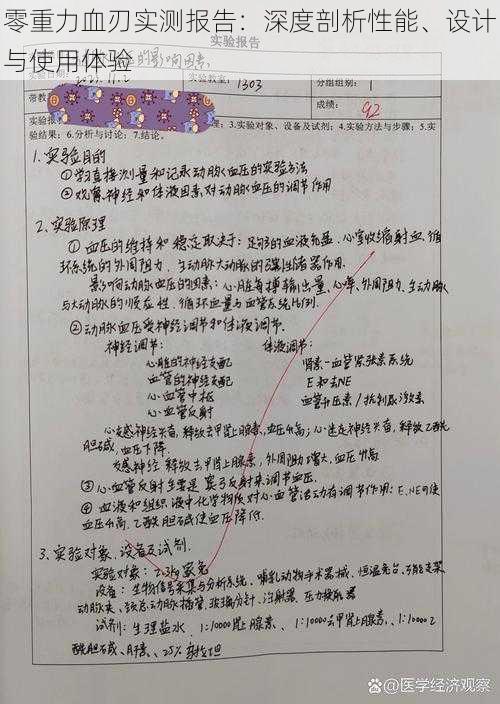 零重力血刃实测报告：深度剖析性能、设计
与使用体验
实验报告
的影响因素
实验教室：1303
分组组别：1
带教
成绩：92
实验报
理；3.实验对象、设备及试剂；4.实验方法与步骤；5.实
验结果；6.分析与讨论；7.结论。
1.实验目的
①学习直接测量和记录动脉血压的实验方法
②观察神经和体液因素对动脉血压的调节作用
2.实验原理
①血压的维持和稳定取决于：足够的血液充盈、心室收缩射血、循
环系统的外周阻力、主动脉大动脉的弹性储器作用.
影响动脉血压的因素：心脏每搏输出量、心率、外周阻力、主动脉
与大动脉的顺应性、循环血量与血管系统比例.
②动脉血压受神经调节和体液调节.
神经调节： 体液调节：
心脏的神经支配 肾素-血管紧张素系统
血管的神经支配 E和去NE
心血管中枢 血管升压素/抗利尿激素
心血管反射
心交感神经兴奋，释放去甲肾上腺素，血压升高；心迷走神经兴奋，释放乙酰
胆碱，血压下降.
交感神经释放去甲肾上腺素，外周阻力增大，血压升高
③心血管反射主要是 反射来调节血压.
④血液和组织液中化学物质对心血管活动有调节作用：E、NE可使
血压升高，乙酰胆碱使血压降低.
3.实验对象、设备及试剂.
实验对象：2.3kg家兔
设备：生物信号采集与分析系统、哺乳动物手术器械、恒温兔台、万能支架
动脉夹、动脉插管、玻璃分针、注射器、压力换能器
试剂：生理盐水、1:10000肾上腺素、1:10000去甲肾上腺素、1:10000乙
酰胆碱、肝素、25%
百家号@医学经济观察